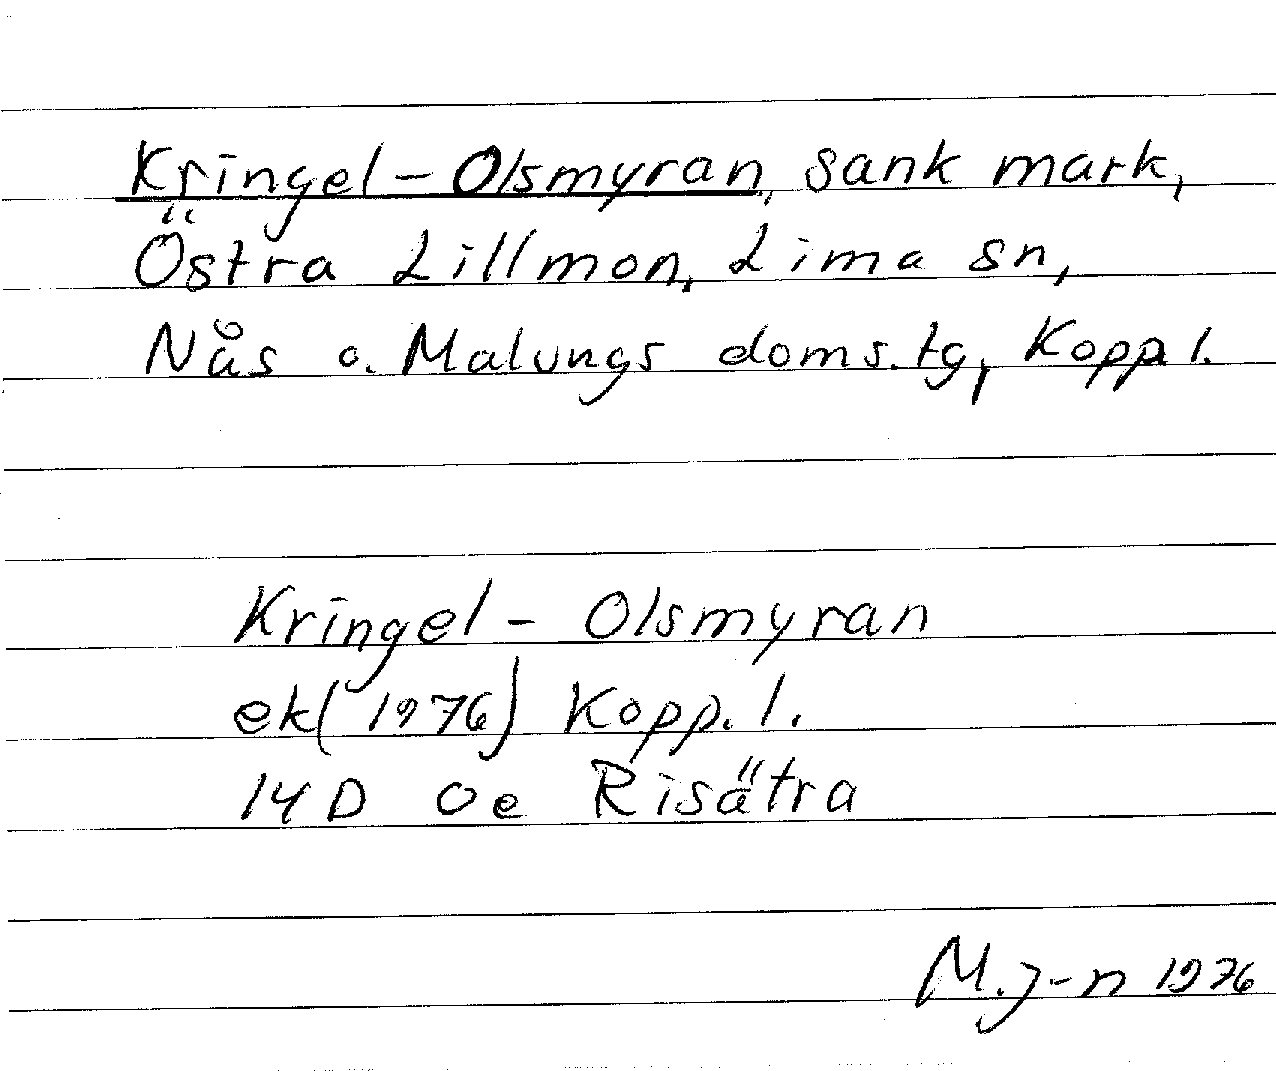 Kringel-Olsmyran, sank mark,
Östra Lillmon, Lima sn,
Nås o. Malungs doms.tg, Kopp.l.
Kringel - Olsmyran
ek(1976) Kopp. l.
14D 0e Risätra
M.J-n 1976